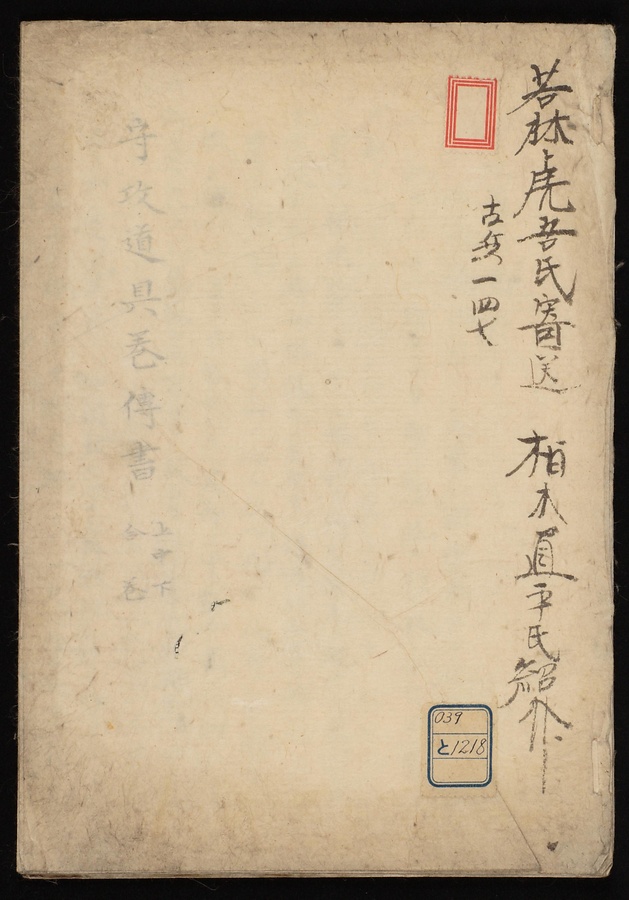 若林虎吾氏寄送 柏木直平氏紹介
古兵一四七
守攻道具巻傳書 上中下
合巻
039
と1218